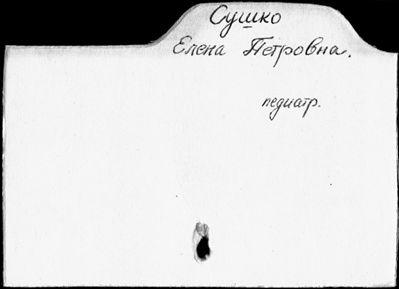 Сушко
Елена Петровна.
педиатр.